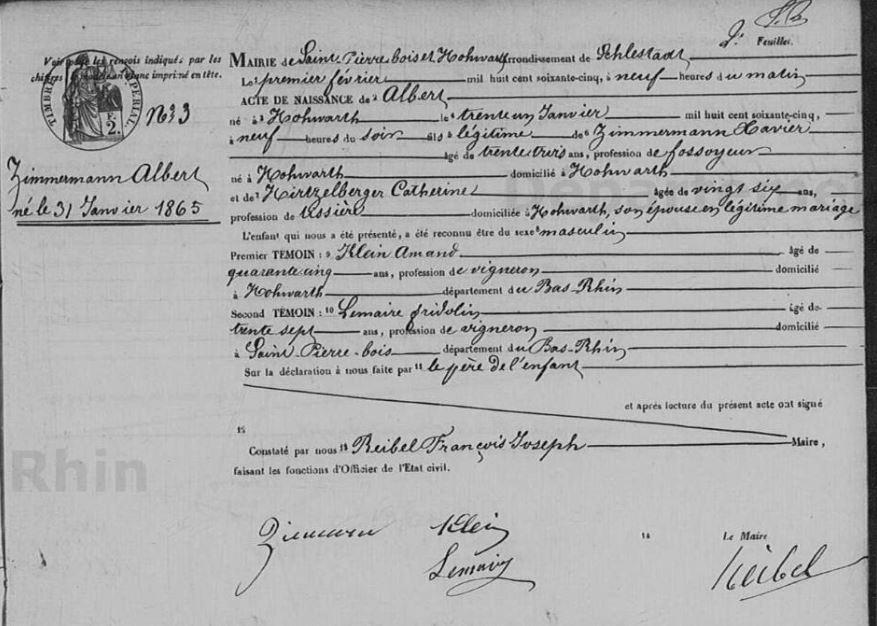 2e Feuillet.
Voir pour les renvois indiqués par les
chiffres le modèle en blanc imprimé en tête.
TIMBRE IMPÉRIAL
2.
No 3
Zimmermann Albert
né le 31 Janvier 1865
MAIRIE de Saint Pierre bois et Hohwarth arrondissement de Schlestadt
Le premier février mil huit cent soixante-cinq, à neuf heures du matin
ACTE DE NAISSANCE de Albert
né à Hohwarth le trente un Janvier mil huit cent soixante-cinq,
à neuf heures du soir fils légitime de Zimmermann Xavier
âgé de trente trois ans, profession de fossoyeur
né à Hohwarth domicilié à Hohwarth
et de Hirtzelberger Catherine âgée de vingt six ans,
profession de tissière domiciliée à Hohwarth, son épouse en légitime mariage
L'enfant qui nous a été présenté, a été reconnu être du sexe masculin
Premier TÉMOIN : 9 Klein Amand âgé de
quarante cinq ans, profession de vigneron domicilié
à Hohwarth département du Bas-Rhin
Second TÉMOIN : 10 Lemaire Fridolin âgé de
trente sept ans, profession de vigneron domicilié
à Saint-Pierre-bois département du Bas-Rhin
Sur la déclaration à nous faite par 11 le père de l'enfant
et après lecture du présent acte ont signé
12
Constaté par nous 13 Reibel François Joseph Maire,
faisant les fonctions d'Officier de l'État civil.
Rhin
Klein
14 Le Maire
Lemaire
Reibel